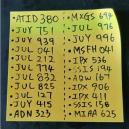 ATID 380
JUY 751
JUY 939
JUL 041
JUL 212
JUL 774
JUL 832
JUL 825
JUL 127
JUY 415
ADN 323
MXGS 694
JUL 976
JUY 996
MSFH 041
IPX 536
SSIS 194
ADW 167
IDX 906
IDX 411
SSIS 158
MIAA 625